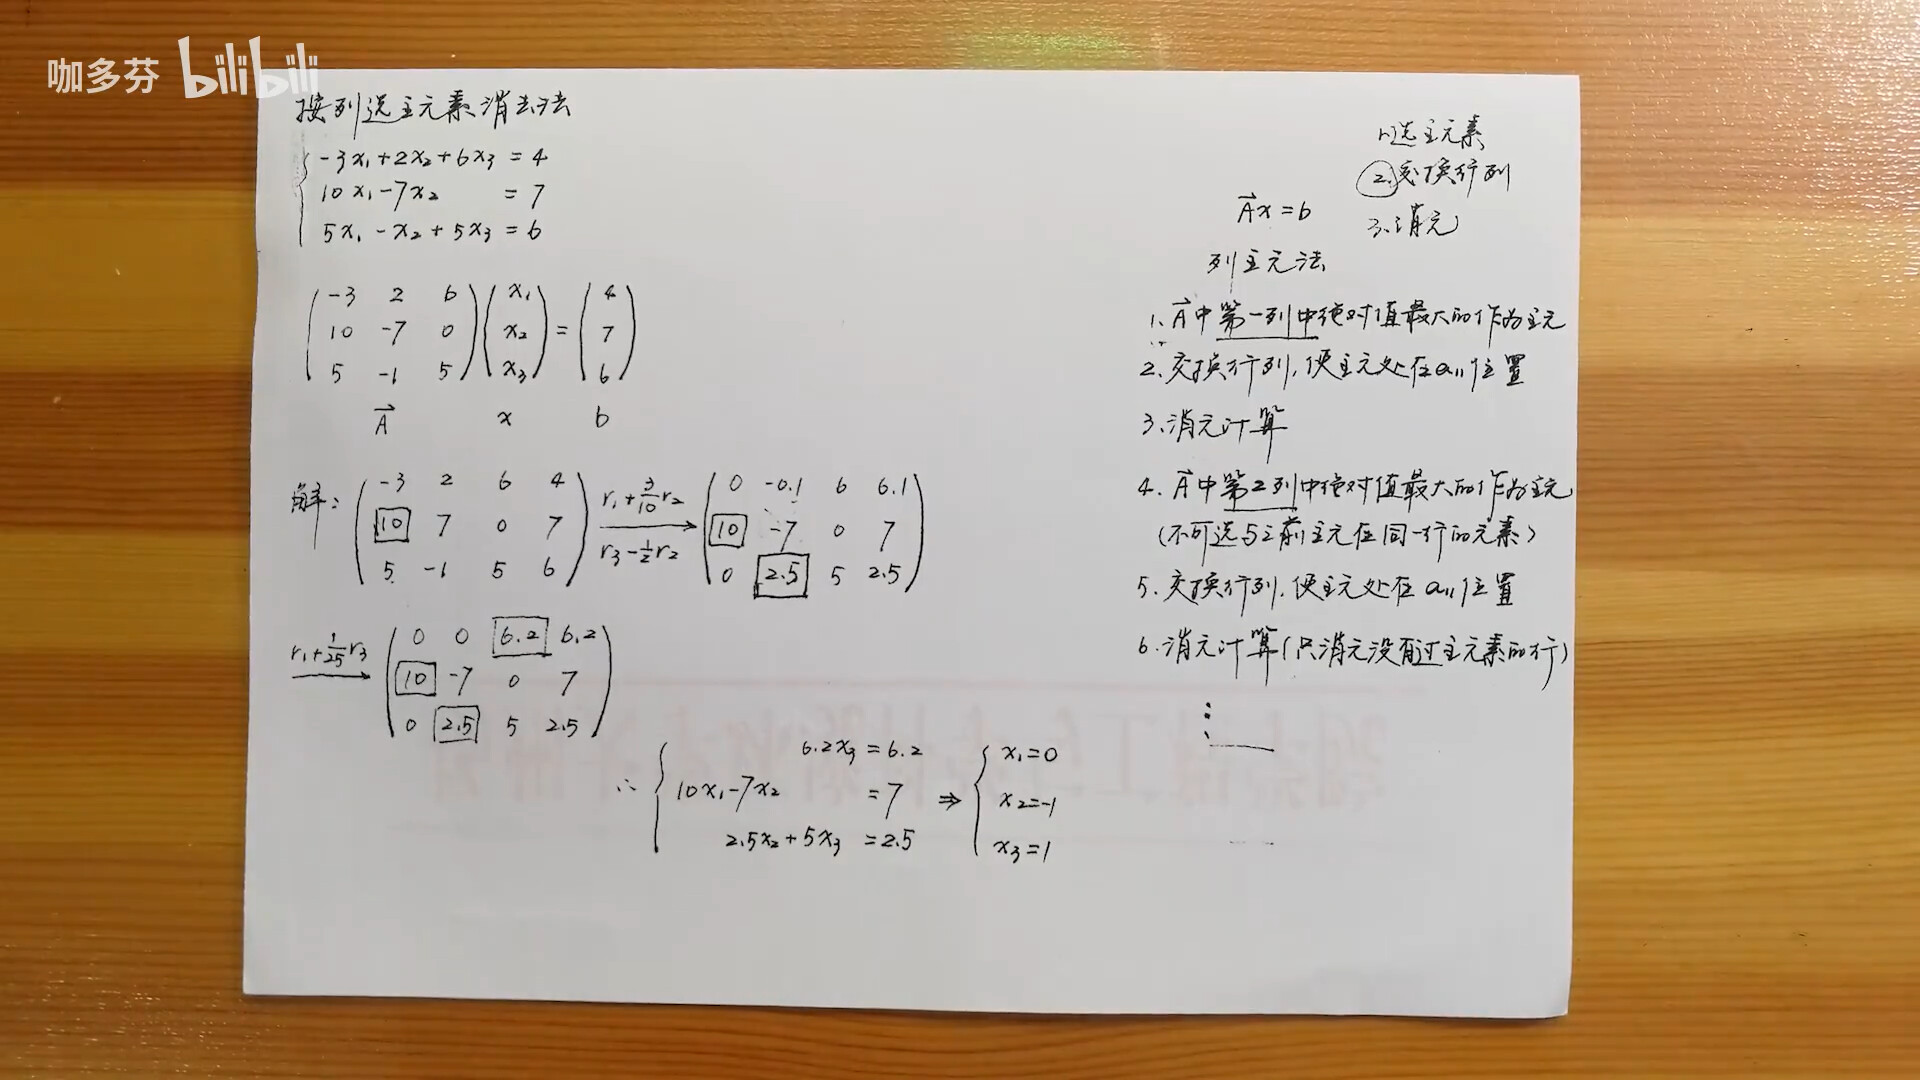 咖多芬 bilibili
按列选主元素消去法
-3x₁+2x₂+6x₃=4
10x₁-7x₂=7
5x₁-x₂+5x₃=6
-3 2 6 x₁ 4
10 -7 0 x₂ = 7
5 -1 5 x₃ 6
A⃗ x b
解:
-3 2 6 4
10 7 0 7
5 -1 5 6
r₁+3/10r₂
r₃-1/2r₂
0 -0.1 6 6.1
10 -7 0 7
0 2.5 5 2.5
r₁+1/25r₃
0 0 6.2 6.2
10 -7 0 7
0 2.5 5 2.5
∴
6.2x₃=6.2
10x₁-7x₂=7
2.5x₂+5x₃=2.5
⇒
x₁=0
x₂=-1
x₃=1
1.选主元素
2.交换行列
3.消元
A⃗x=b
列主元法
1.A⃗中第一列中绝对值最大的作为主元
2.交换行列,使主元处在a₁₁位置
3.消元计算
4.A⃗中第2列中绝对值最大的作为主元
(不可选与之前主元在同一行的元素)
5.交换行列,使主元处在a₁₁位置
6.消元计算(只消元没有过主元素的行)
⋮